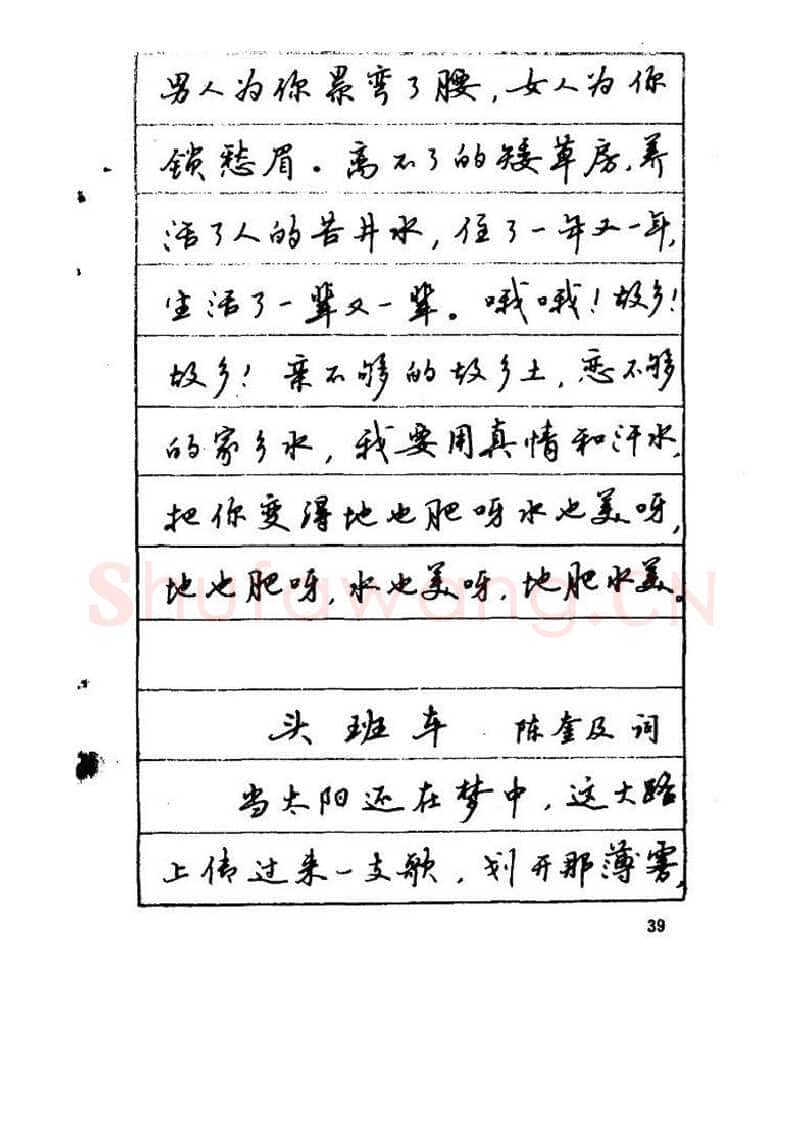 男人为你累弯了腰，女人为你
锁愁眉。离不了的矮草房，养
活了人的苦井水，住了一年又一年，
生活了一辈又一辈。哦哦！故乡！
故乡！亲不够的故乡土，恋不够
的家乡水，我要用真情和汗水，
把你变得地也肥呀水也美呀，
地也肥呀，水也美呀，地肥水美。
Shufawang.CN
头班车 陈奎及词
当太阳还在梦中，这大路
上传过来一支歌，划开那薄雾，
39